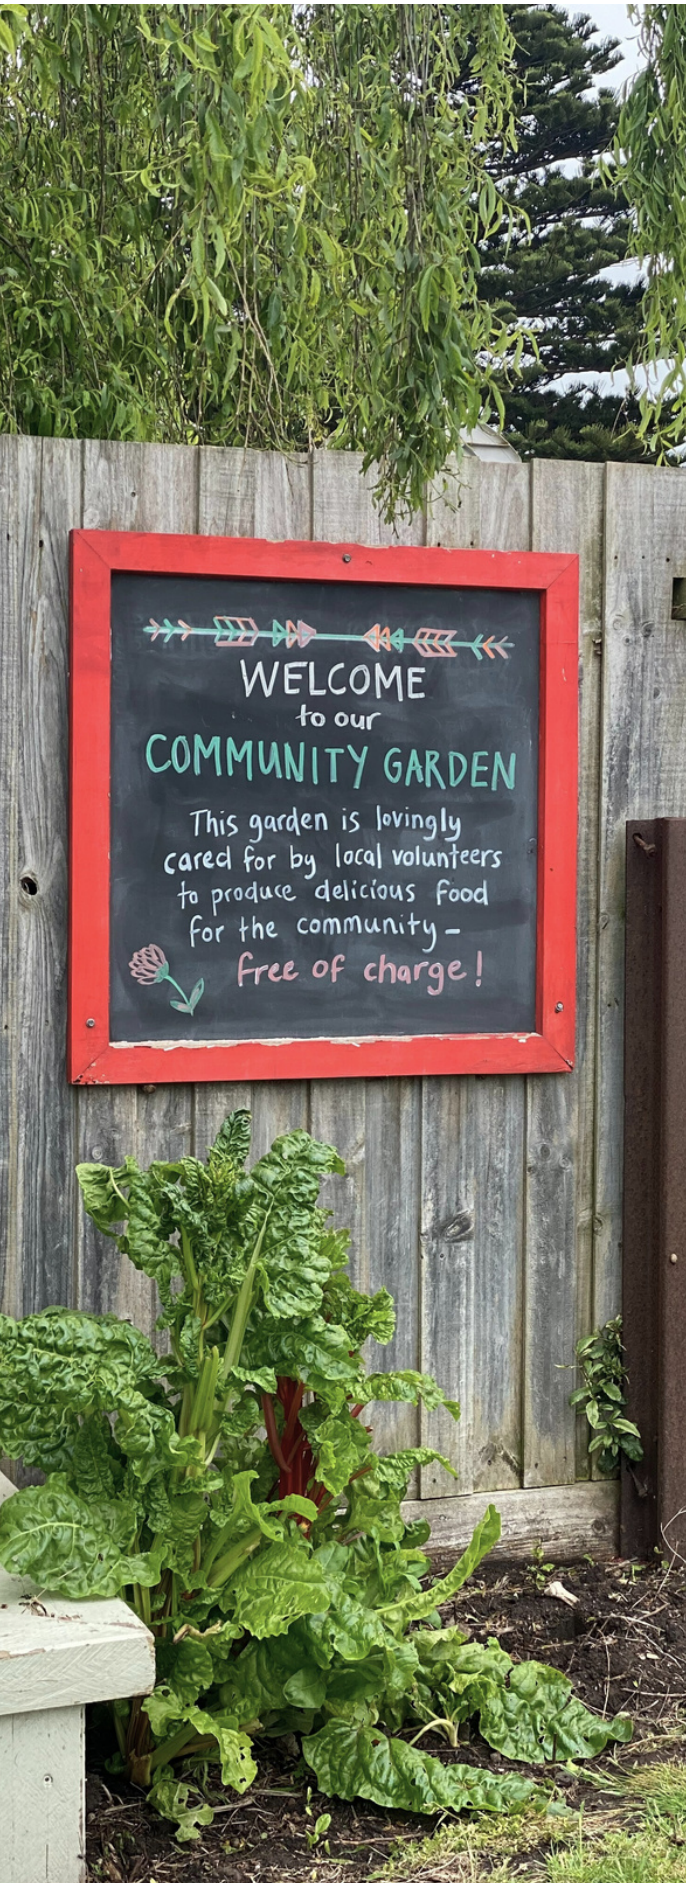 WELCOME
to our
COMMUNITY GARDEN
This garden is lovingly
cared for by local volunteers
to produce delicious food
for the community -
free of charge!